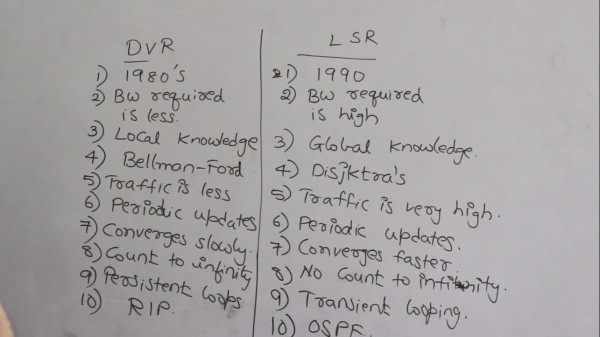 DVR
1) 1980's
2) BW required
is less.
3) Local knowledge
4) Bellman-Ford
5) Traffic is less
6) Periodic updates
7) Converges slowly.
8) Count to infinity
9) Persistent loops
10) RIP.
LSR
1) 1990
2) BW required
is high
3) Global knowledge.
4) Disjktra's
5) Traffic is very high.
6) Periodic updates.
7) Converges faster
8) No Count to infinity.
9) Transient looping.
10) OSPF